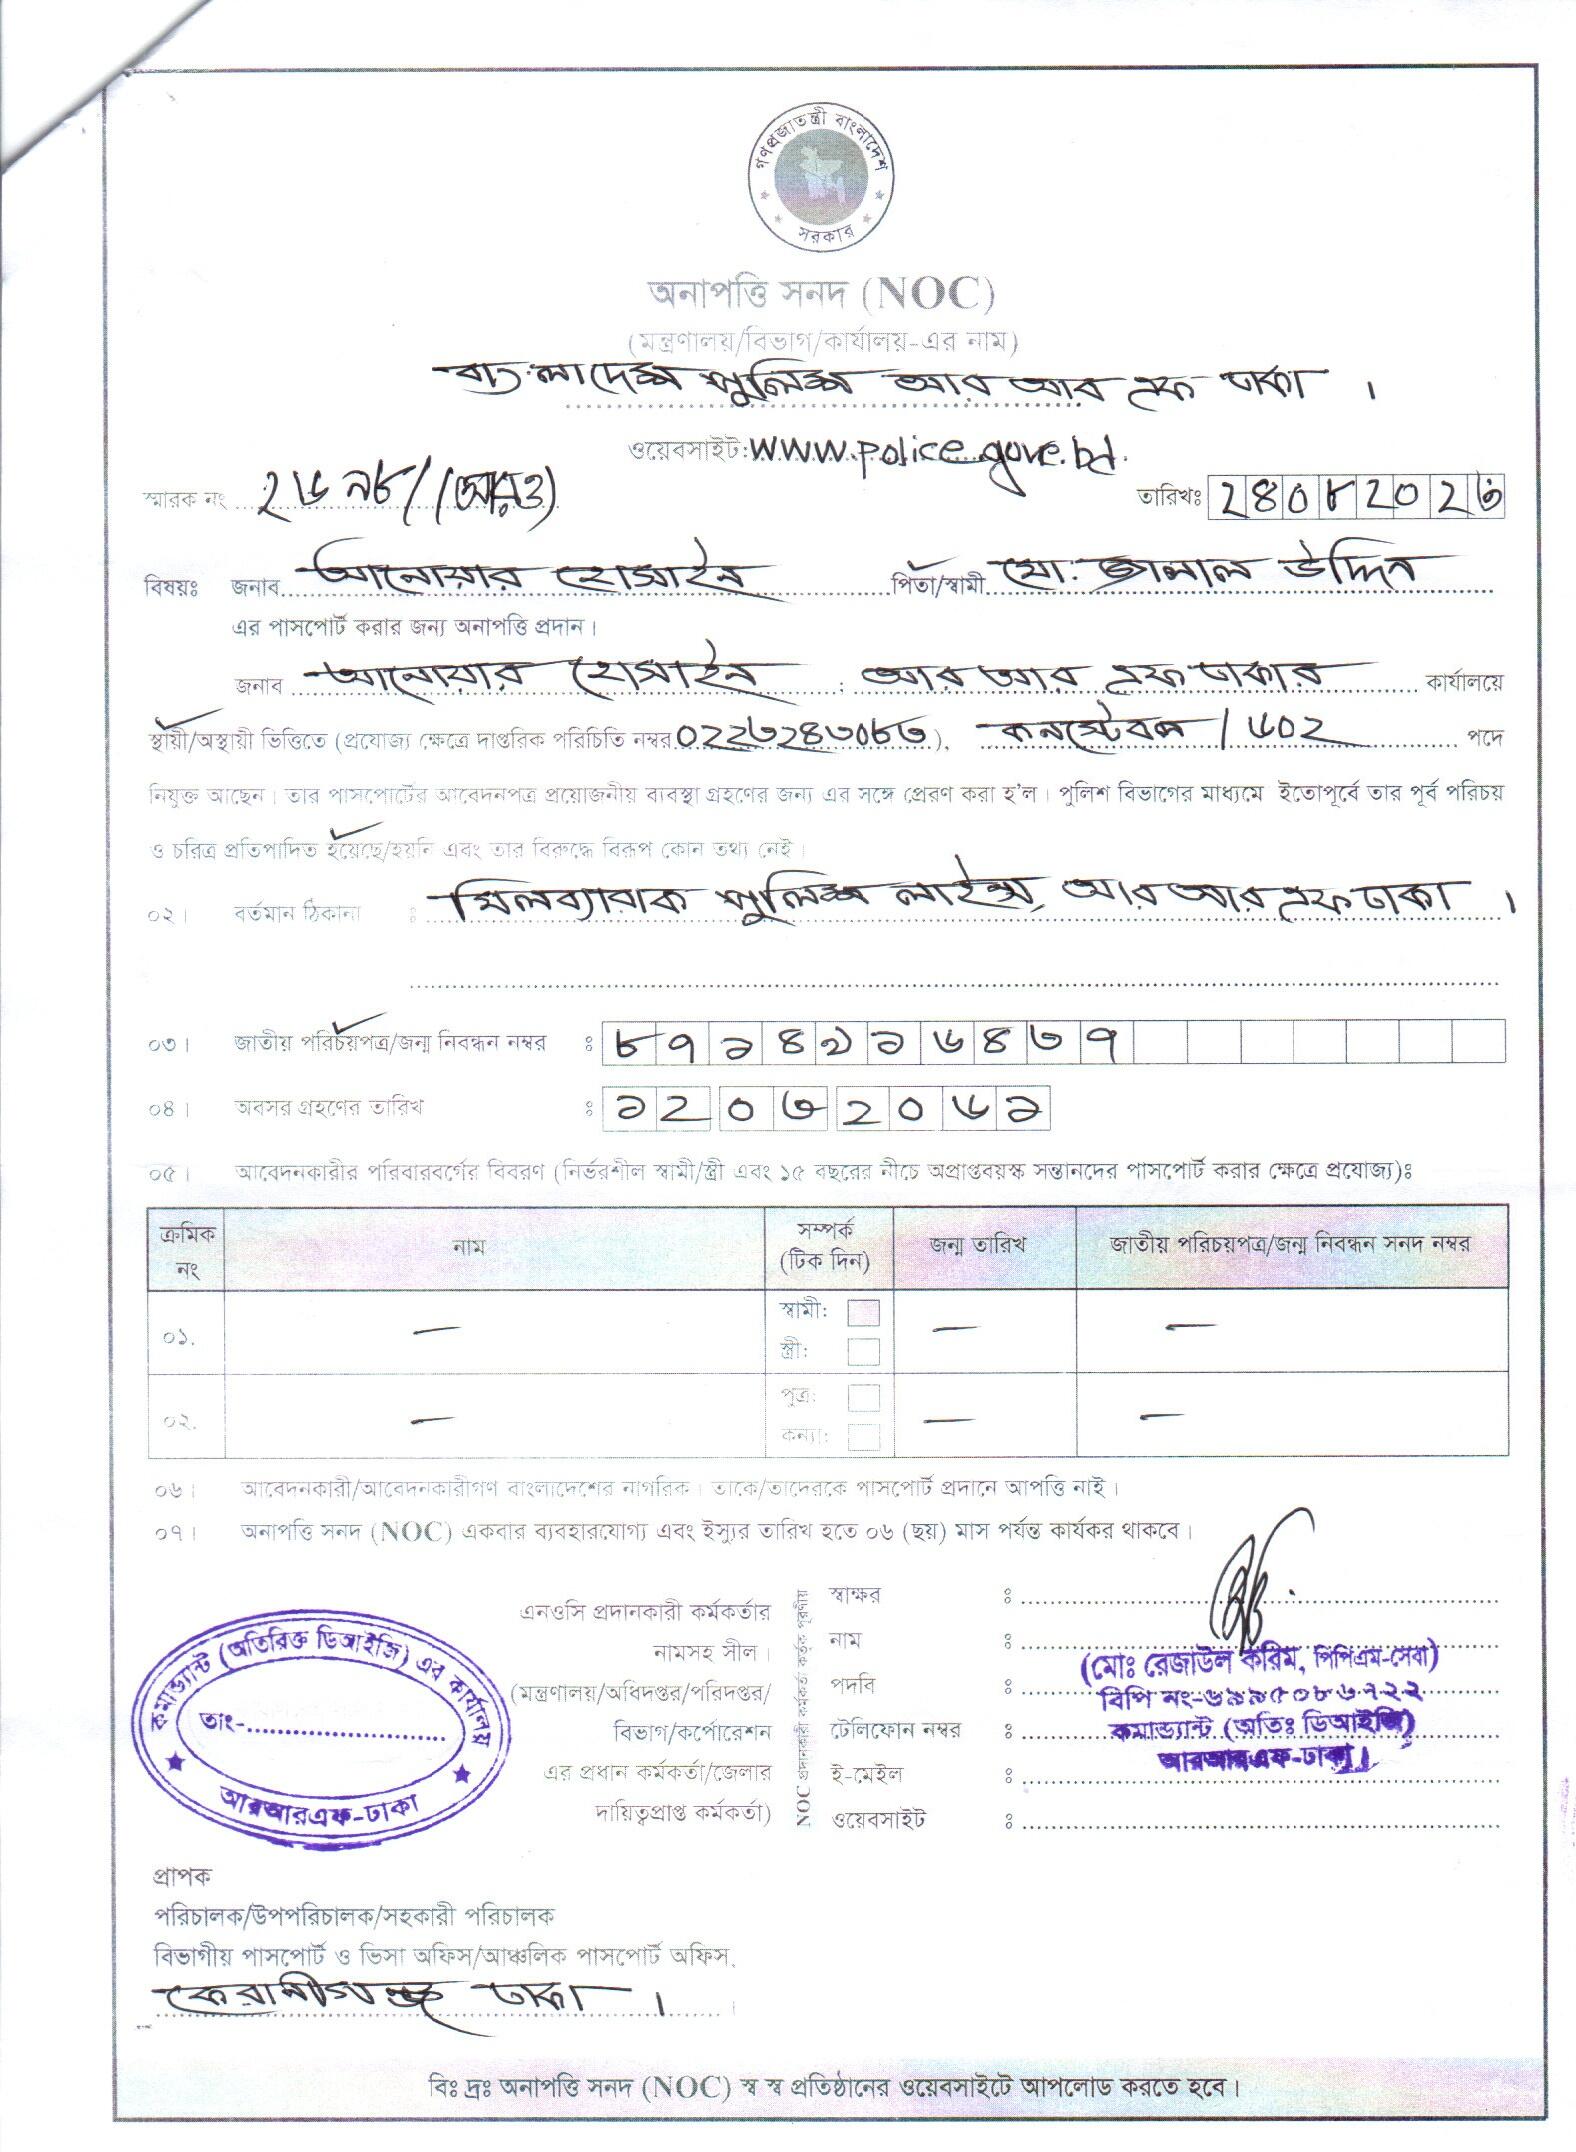 গণপ্রজাতন্ত্রী বাংলাদেশ
সরকার
অনাপত্তি সনদ (NOC)
(মন্ত্রণালয়/বিভাগ/কার্যালয়-এর নাম)
বাংলাদেশ পুলিশ আর আর এফ ঢাকা ।
ওয়েবসাইট: www.police.gove.bd.
স্মারক নং ২৬ /(আরও)
তারিখঃ ২৪০৮২০২৩
বিষয়ঃ জনাব আনোয়ার হোসাইন পিতা/স্বামী মো: জালাল উদ্দিন
এর পাসপোর্ট করার জন্য অনাপত্তি প্রদান।
জনাব আনোয়ার হোসাইন : আর আর এফ ঢাকার কার্যালয়ে
স্থায়ী/অস্থায়ী ভিত্তিতে (প্রযোজ্য ক্ষেত্রে দাপ্তরিক পরিচিতি নম্বর ০২২৩২৪৩০৮৩), কনস্টেবল / ৬০২ পদে
নিযুক্ত আছেন। তার পাসপোর্টের আবেদনপত্র প্রয়োজনীয় ব্যবস্থা গ্রহণের জন্য এর সঙ্গে প্রেরণ করা হ'ল। পুলিশ বিভাগের মাধ্যমে ইতোপূর্বে তার পূর্ব পরিচয়
ও চরিত্র প্রতিপাদিত হয়েছে/হয়নি এবং তার বিরুদ্ধে বিরূপ কোন তথ্য নেই।
০২। বর্তমান ঠিকানা : মিলব্যারাক পুলিশ লাইন্স, আর আর এফ ঢাকা ।
০৩। জাতীয় পরিচয়পত্র/জন্ম নিবন্ধন নম্বর ঃ ৮৭১৪৯১৬৪৩৭
০৪। অবসর গ্রহণের তারিখ ঃ ১২০৩২০৬১
০৫। আবেদনকারীর পরিবারবর্গের বিবরণ (নির্ভরশীল স্বামী/স্ত্রী এবং ১৫ বছরের নীচে অপ্রাপ্তবয়স্ক সন্তানদের পাসপোর্ট করার ক্ষেত্রে প্রযোজ্য)ঃ
ক্রমিক নং নাম সম্পর্ক (টিক দিন) জন্ম তারিখ জাতীয় পরিচয়পত্র/জন্ম নিবন্ধন সনদ নম্বর
০১. — স্বামী: — —
স্ত্রী:
০২. — পুত্র: — —
কন্যা:
০৬। আবেদনকারী/আবেদনকারীগণ বাংলাদেশের নাগরিক। তাকে/তাদেরকে পাসপোর্ট প্রদানে আপত্তি নাই।
০৭। অনাপত্তি সনদ (NOC) একবার ব্যবহারযোগ্য এবং ইস্যুর তারিখ হতে ০৬ (ছয়) মাস পর্যন্ত কার্যকর থাকবে।
কমান্ড্যান্ট (অতিরিক্ত ডিআইজি) এর কার্যালয়
তাং-
আরআরএফ-ঢাকা
এনওসি প্রদানকারী কর্মকর্তার
নামসহ সীল।
(মন্ত্রণালয়/অধিদপ্তর/পরিদপ্তর/
বিভাগ/কর্পোরেশন
এর প্রধান কর্মকর্তা/জেলার
দায়িত্বপ্রাপ্ত কর্মকর্তা)
NOC প্রদানকারী কর্মকর্তা কর্তৃক পূরণীয়
স্বাক্ষর ঃ
নাম ঃ
পদবি ঃ
টেলিফোন নম্বর ঃ
ই-মেইল ঃ
ওয়েবসাইট ঃ
(মোঃ রেজাউল করিম, পিপিএম-সেবা)
বিপি নং-
কমান্ড্যান্ট (অতিঃ ডিআইজি)
আরআরএফ-ঢাকা।
প্রাপক
পরিচালক/উপপরিচালক/সহকারী পরিচালক
বিভাগীয় পাসপোর্ট ও ভিসা অফিস/আঞ্চলিক পাসপোর্ট অফিস,
কেরানীগঞ্জ ঢাকা ।
বিঃ দ্রঃ অনাপত্তি সনদ (NOC) স্ব স্ব প্রতিষ্ঠানের ওয়েবসাইটে আপলোড করতে হবে।